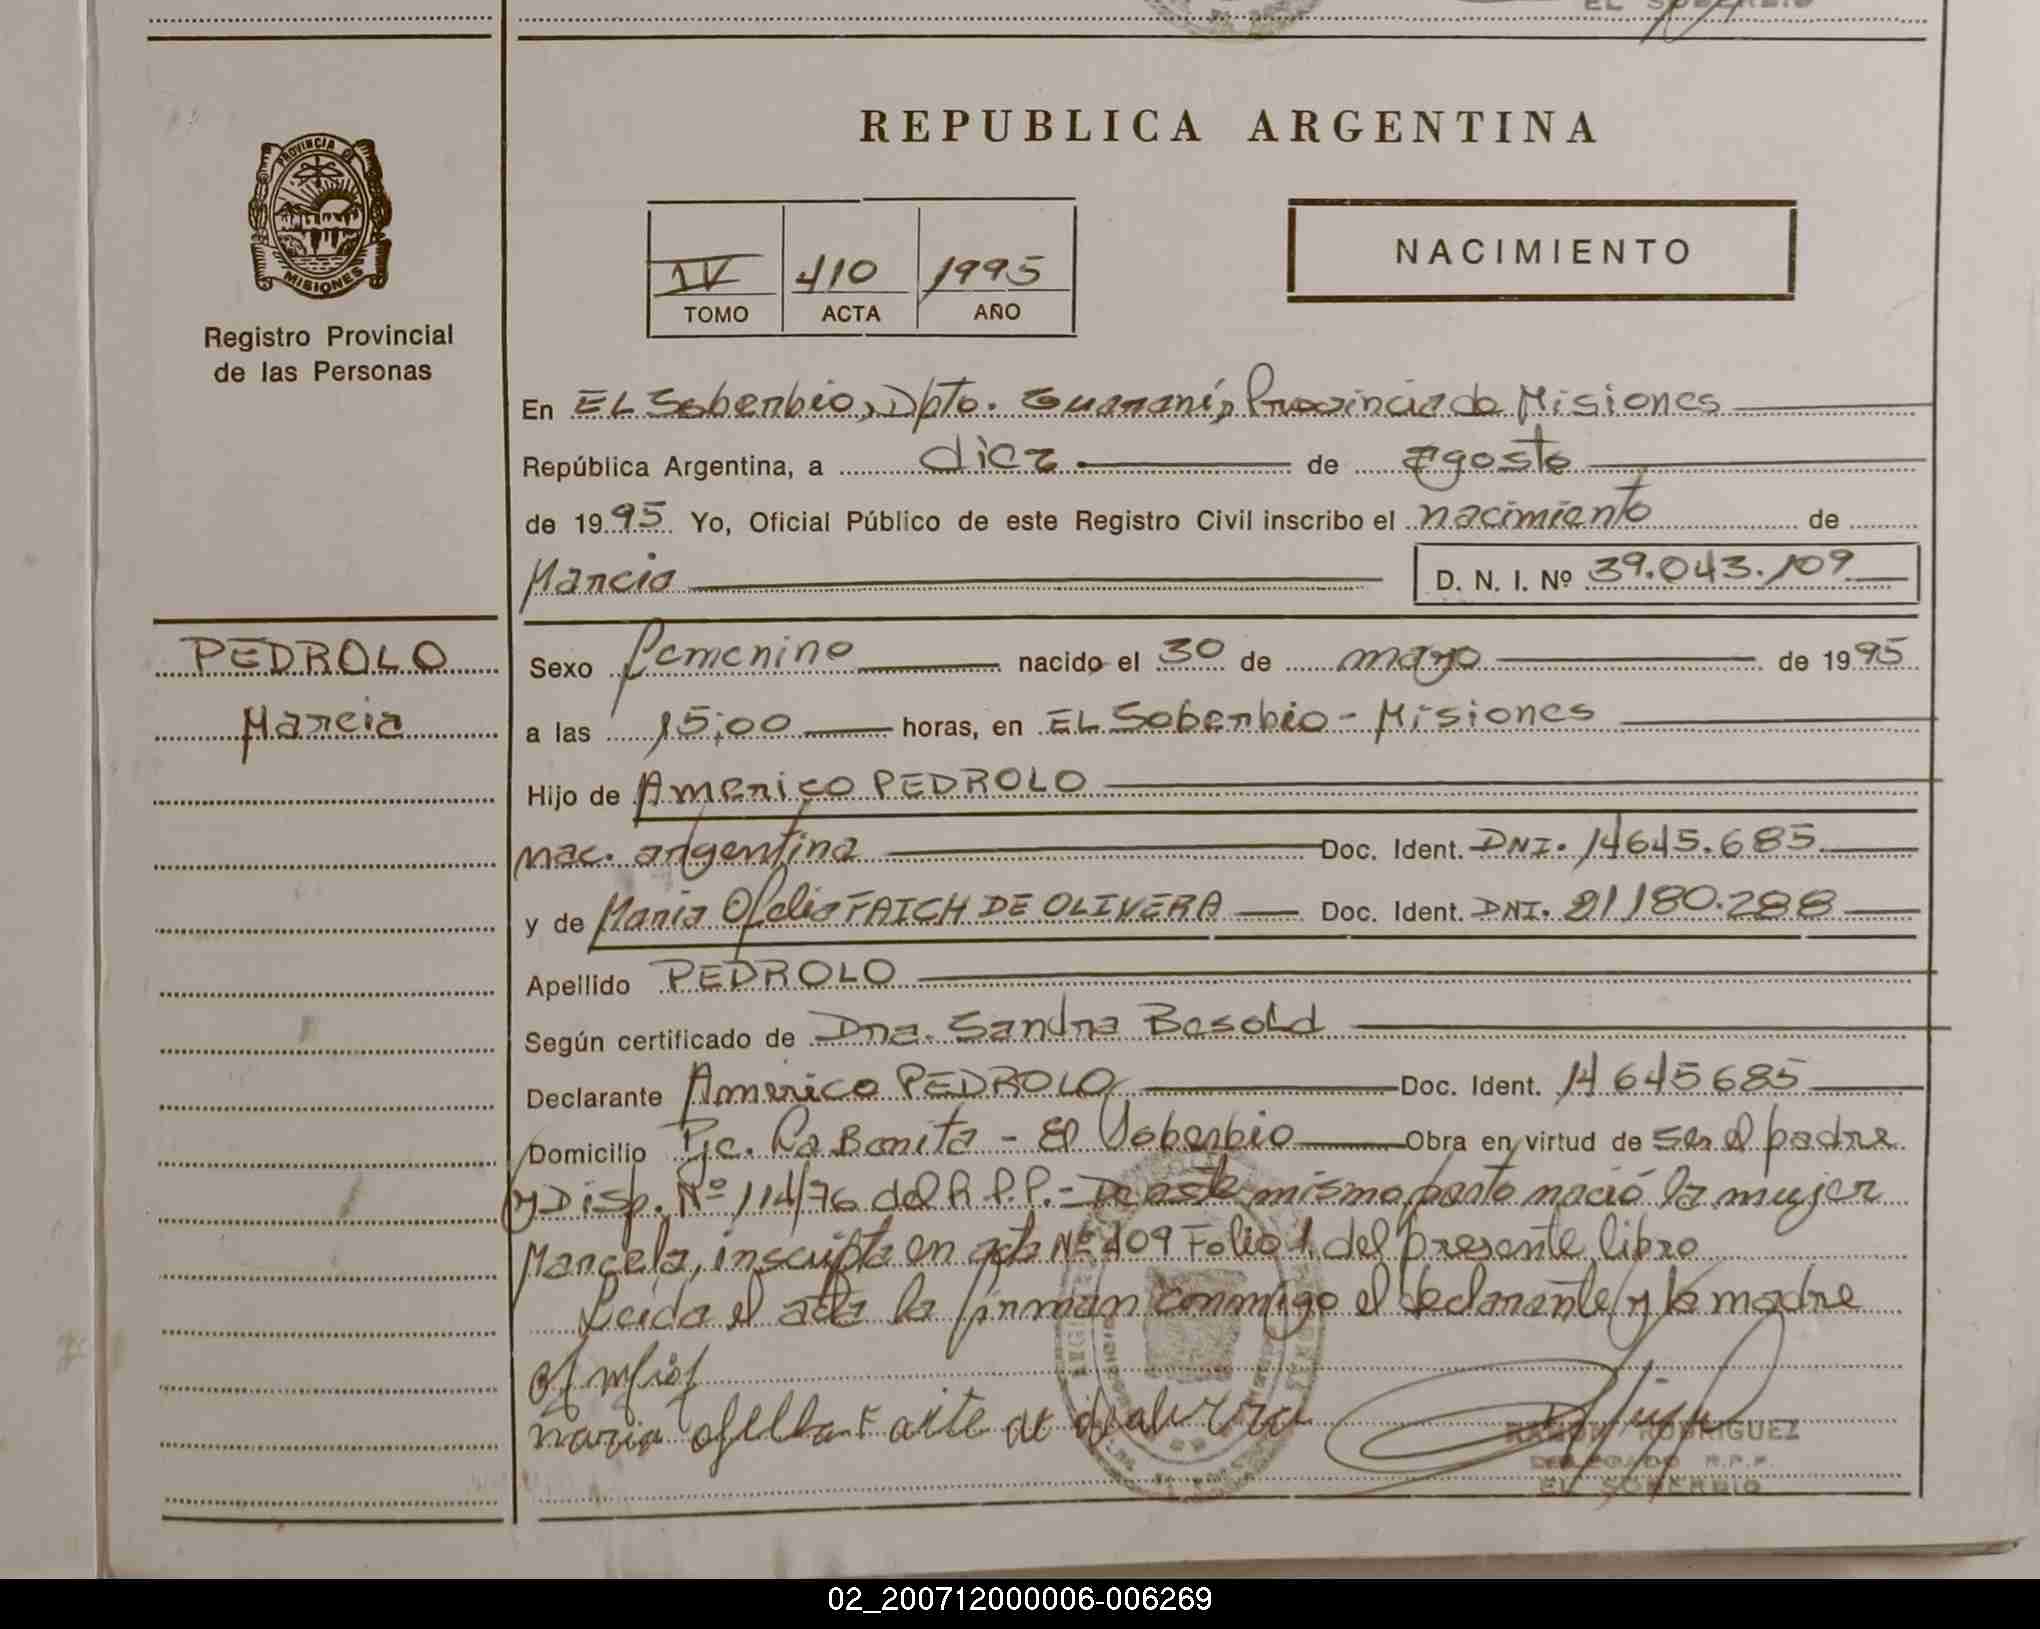 EL SOBERBIO
REPUBLICA ARGENTINA
PROVINCIA DE
MISIONES
Registro Provincial
de las Personas
NACIMIENTO
IV 410 1995
TOMO ACTA AÑO
En EL Soberbio, Dpto. Guaraní, Provincia de Misiones
República Argentina, a diez de agosto
de 1995 Yo, Oficial Público de este Registro Civil inscribo el nacimiento de
Marcia D. N. I. Nº 39.043.109
PEDROLO
Marcia
Sexo femenino nacido el 30 de mayo de 1995
a las 15,00 horas, en EL Soberbio - Misiones
Hijo de Americo PEDROLO
nac. argentina Doc. Ident. DNI. 14645.685
y de Maria Ofelia FAICH DE OLIVERA Doc. Ident. DNI. 21180.288
Apellido PEDROLO
Según certificado de Dra. Sandra Besold
Declarante Americo PEDROLO Doc. Ident. 14645685
Domicilio Pje. La Bonita - El Soberbio Obra en virtud de ser el padre
y Disp. Nº 114/76 del R.P.P.- De este mismo parto nació la mujer
Marcela, inscripta en acta Nº 409 Folio 1 del presente libro
Leida el acta la firman conmigo el declarante y la madre
maria ofelia
RAMON RODRIGUEZ
DELEGADO R.P.P.
EL SOBERBIO
02_200712000006-006269